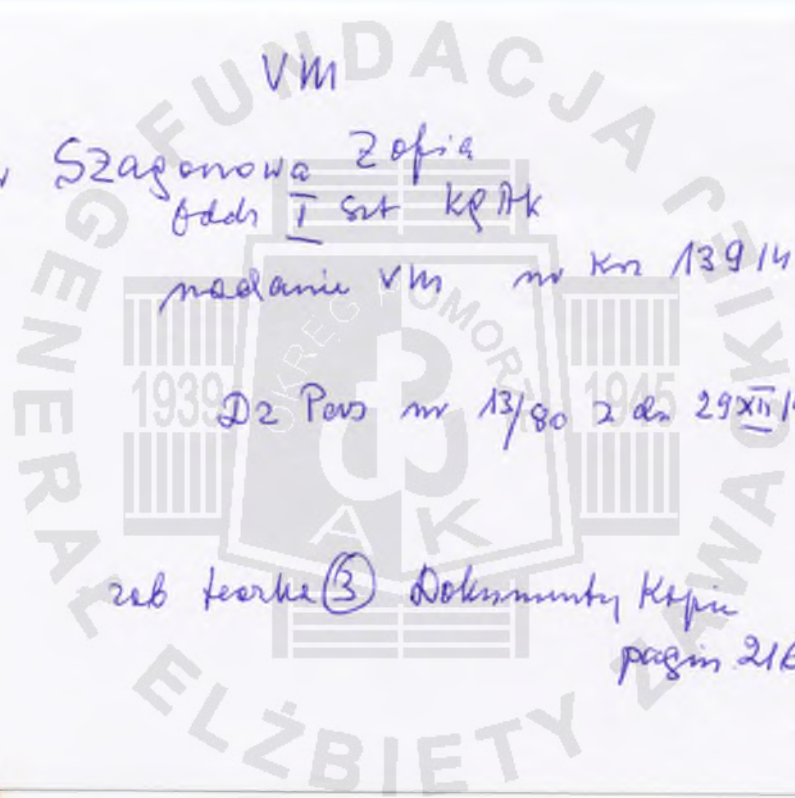 VM
Szagonowa Zofia
Oddz I Szt KG AK
nadanie VM nr Krz 139/4
Dz Pers nr 13/80 z dn 29 XII/4
zob teczka 3 Dokumenty Kopie
pagin 216
FUNDACJA GENERAŁ ELŻBIETY ZAWACKIEJ
OKRĘG POMORZE
1939 1945
AK